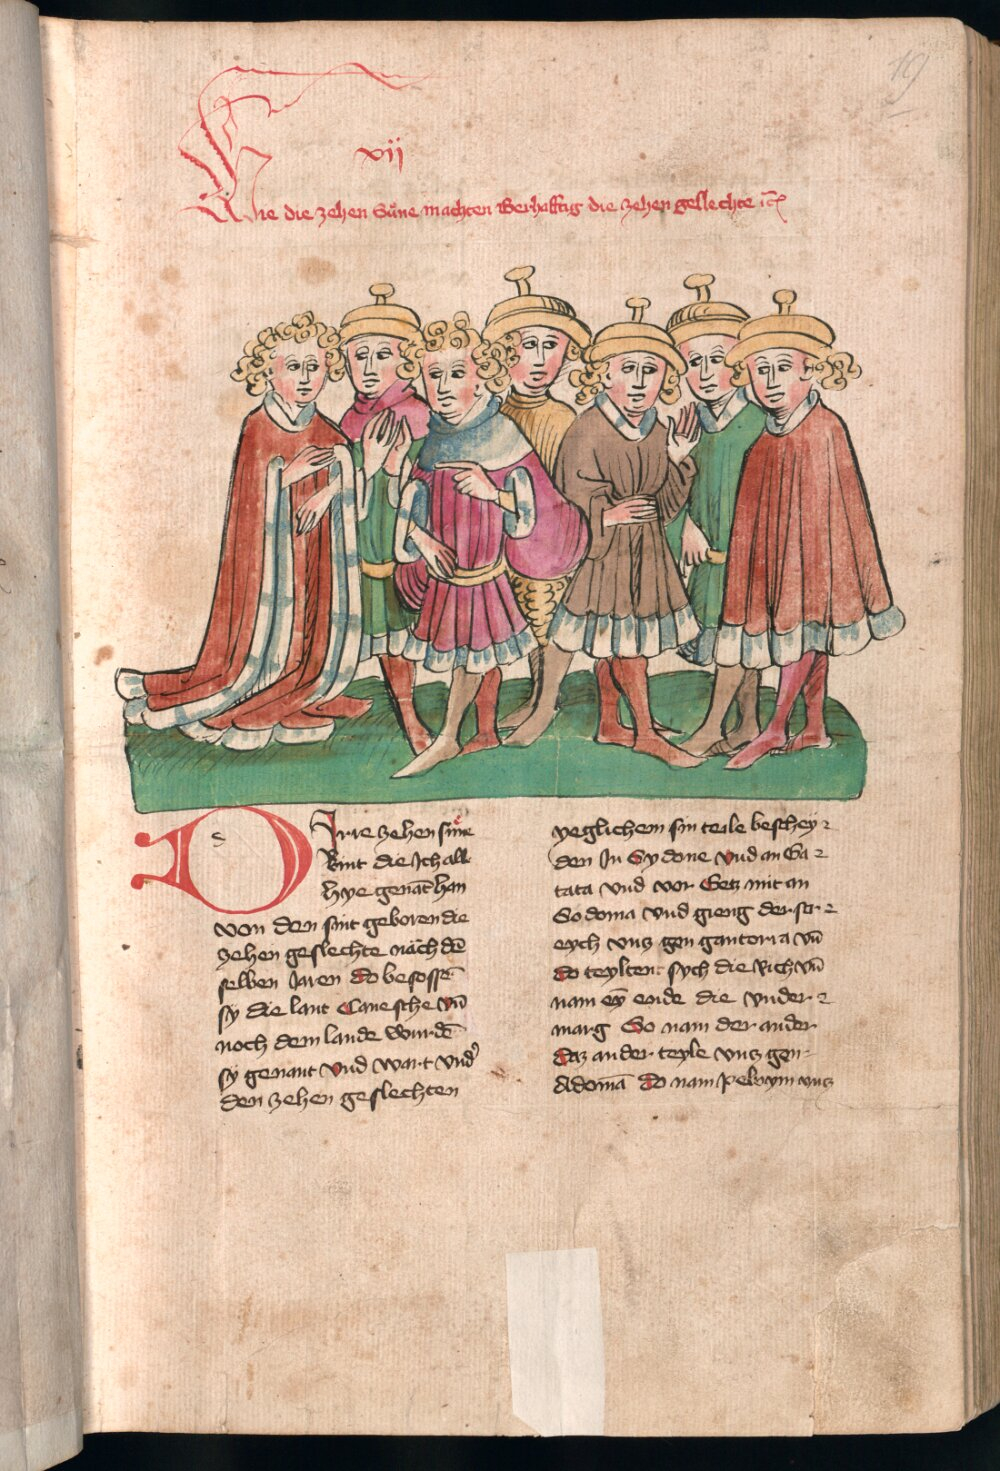 19
xvii
Wie die zehen Sůne machten Berhafftig die zehen geslechte
Dirre zehen süne
kint die Ich all
hye genāt han
von den sint geboren die
zehen geslechte näch dē
selben Jaren do besossē
sy die lant Canesche vn̄
noch dem lande wurdē
sy genant vnd wart vnd'
den zehen geslechten
yeglichem sin teile beschey
den In Sydone vnd an Ga
tata vnd vor Getz mit an
Sodoma vnd gieng der str
eych vntz gen gantoria vn̄
do teylten sych die Rich vn̄
nam eȳ ende die vnder
marg So nam der ander
daz ander teyle vntz gen
Adomā do nam vntz